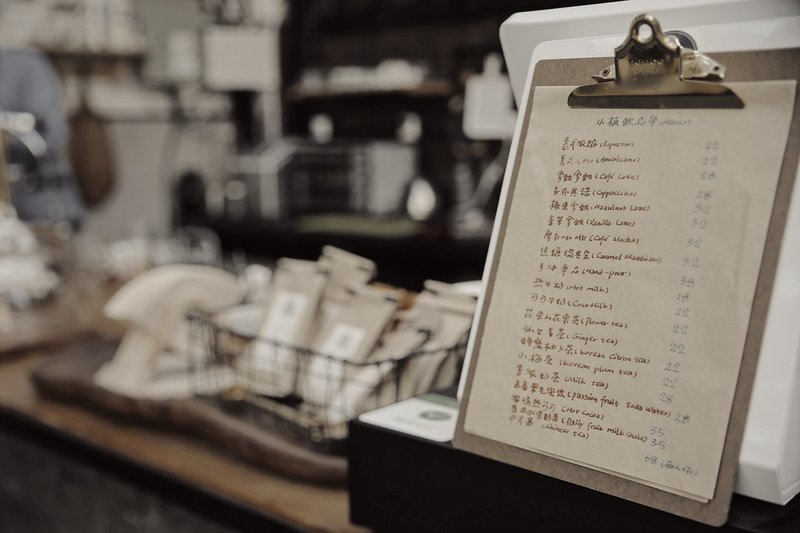 小 饮品单
意式浓缩 (Espresso) 22
美式 (Americano) 22
拿铁 (Café Latte) 28
卡布其诺 (Cappuccino) 28
榛果拿铁 (Hazelnut Latte) 32
香草拿铁 (Vanilla Latte) 32
摩卡咖啡 (Café Mocha) 32
焦糖玛其朵 (Caramel Macchiato) 32
手冲单品 (Hand-pour) 38
热牛奶 (Hot milk) 18
可可牛奶 (Coco Milk) 22
花果 花茶 (Flower tea) 22
仙女姜茶 (Ginger tea) 22
蜂蜜柚子茶 (Korean Citron tea) 22
小梅茶 (Korean plum tea) 22
奶茶 (Milk tea) 28
百香果 (passion fruit Soda Water) 28
热可可 (Hot Cocoa) 35
(Daily fruit milkshake) 35
(Chinese tea) 68